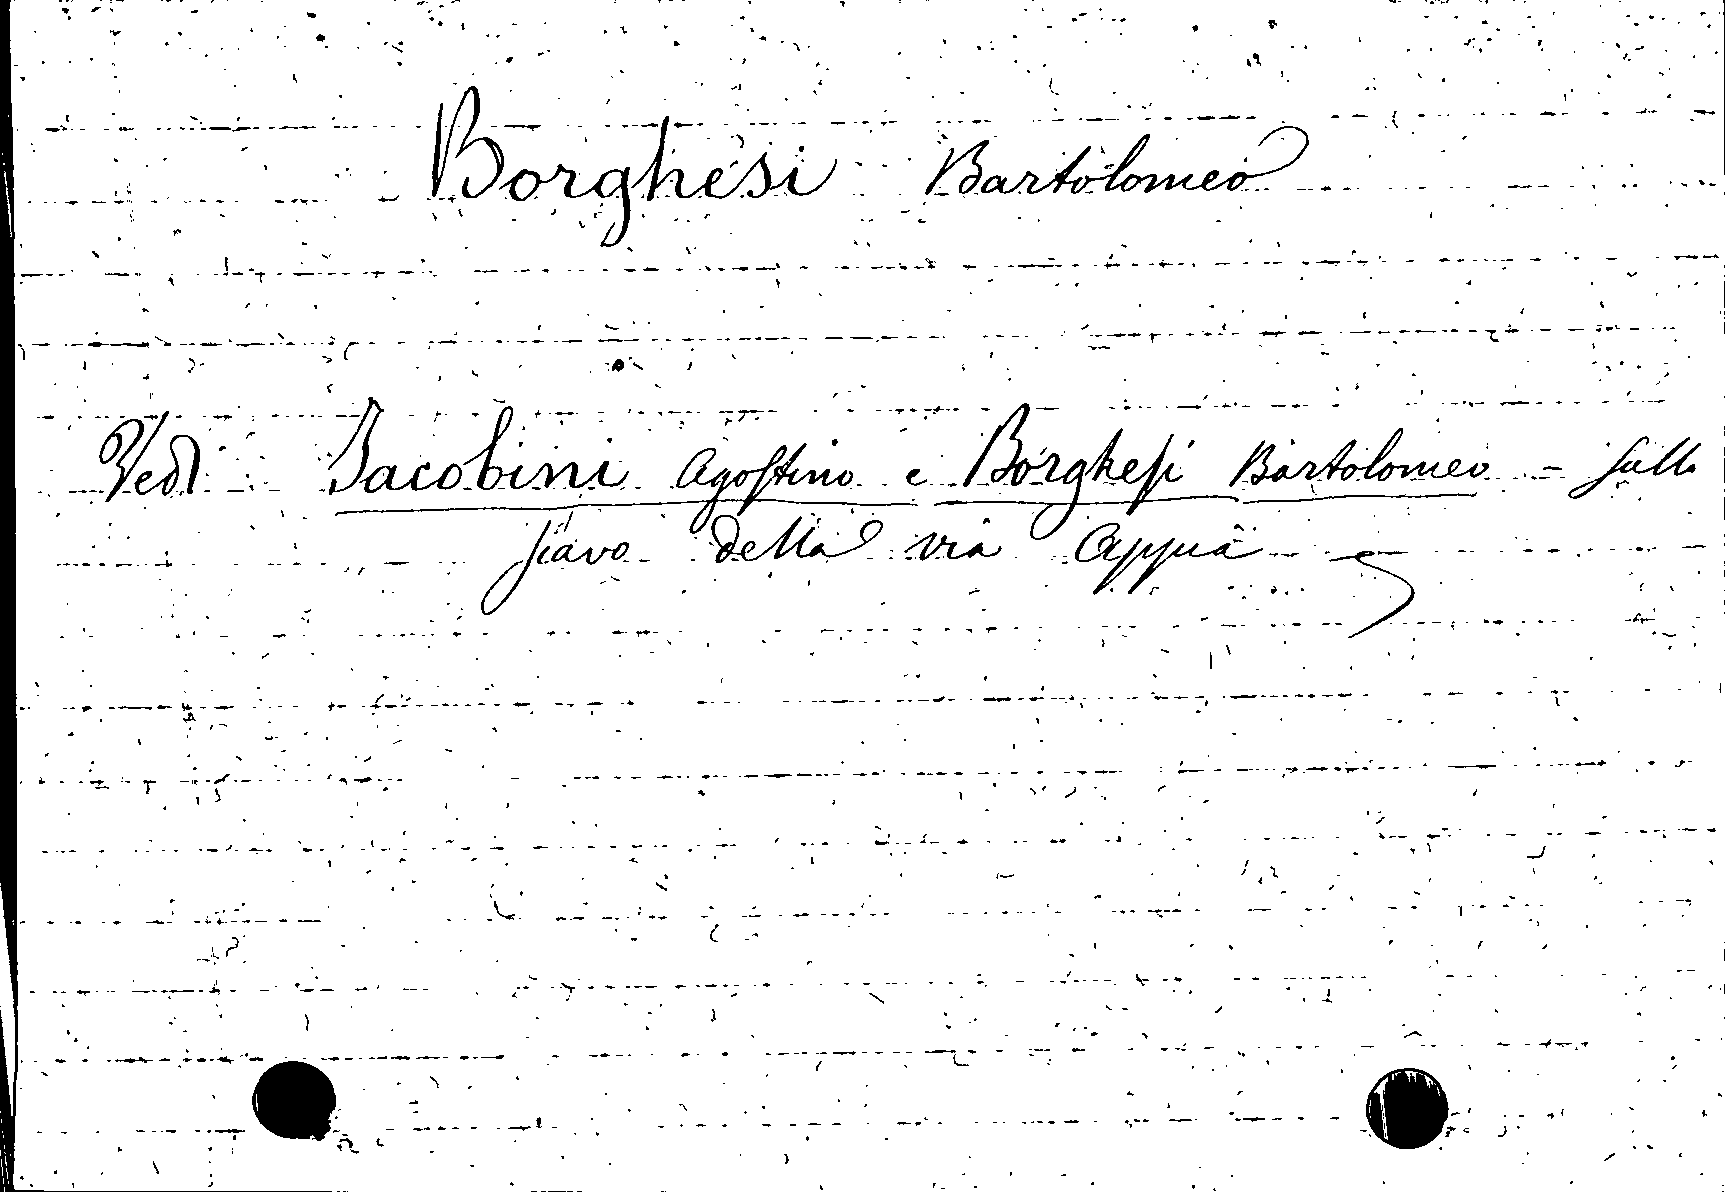 Borghesi Bartolomeo
Vedi Jacobini Agostino e Borghesi Bartolomeo - sullo
scavo della via Appia